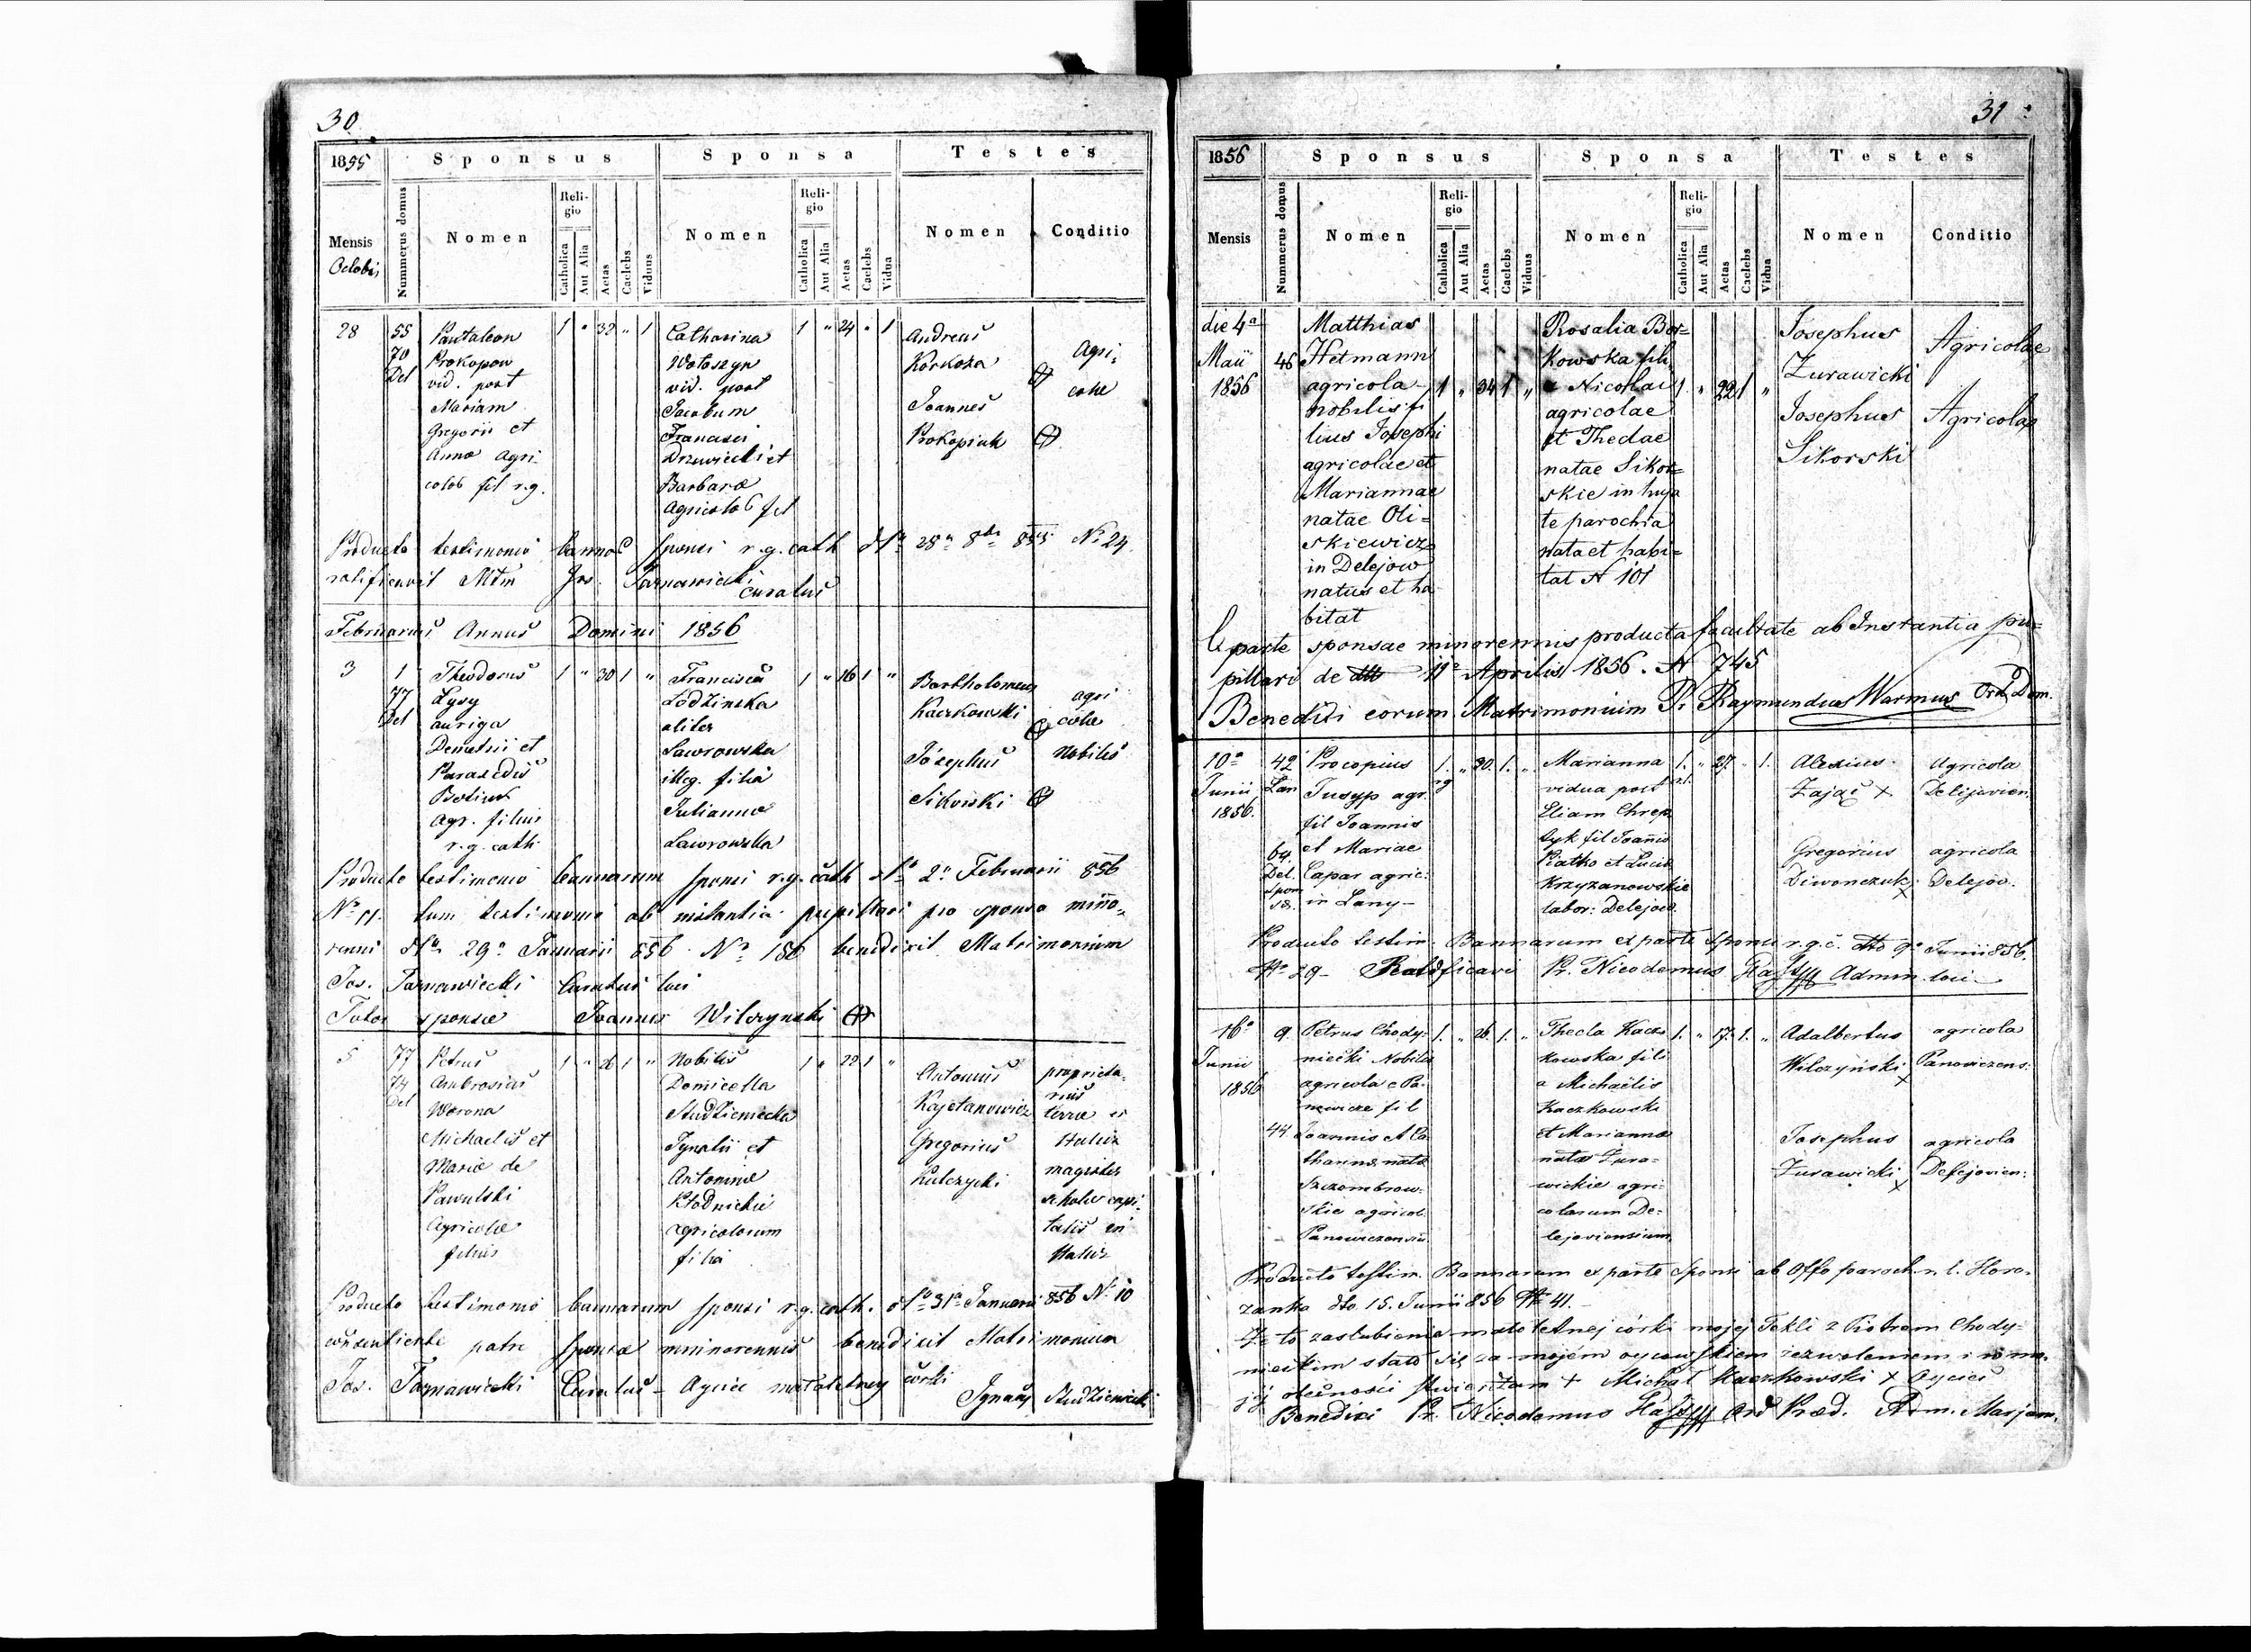 30
1855
Sponsus
Sponsa
Testes
Mensis
Octobris
Nummerus domus
Nomen
Religio
Catholica
Aut Alia
Aetas
Caelebs
Viduus
Nomen
Religio
Catholica
Aut Alia
Aetas
Caelebs
Vidua
Nomen
Conditio
28
55
70
Del
Pantaleon
Prokopow
vid. post
Mariam
Gregorii et
Anna Agri-
colob fil r.g.
1 " 32 " 1
Catharina
Wołoszyn
vid. post
Jacobum
Francisci
Drzewiecki et
Barbara
Agricolob fil
1 " 24 " 1
Andreas
Korkoza
Joannes
Prokopiuk
Agri-
colae
Producto testimonio bannor sponsi r.g. cath dto 28a 8br 855 No 24
ratificavit Mtm Jos. Tarnawiecki
curatus
Februarius Annus Domini 1856
3
1
77
Del
Theodorus
Lysy
auriga
Demetrii et
Parascedis
Botiuk
Agr. filius
r.g. cath
1 " 30 1 "
Francisca
Łodzinska
aliter
Lawrowska
illeg. filia
Julianna
Lawrowska
1 " 16 1 "
Bartholomeus
Kaczkowski
Josephus
Sikorski
agri
colae
Nobiles
Producto testimonio bannarum sponsi r.g. cath dto 2a Februarii 856
No 11. tum testimonio ab instantia pupillari pro sponsa mino-
renni dto 29a Januarii 856 No 186 benedixit Matrimonium
Jos. Tarnawiecki Curatus loci
Tutor sponsae Joannes Wilczynski
5
77
74
Del
Petrus
Ambrosius
Worona
Michaelis et
Maria de
Pawulski
Agricolae
filius
1 " 26 1 "
Nobilis
Domicella
Studzieniecka
Ignatii et
Antonina
Kłodnickie
agricolarum
filia
1 " 22 1 "
Antonius
Kajetanowicz
Gregorius
Kulczycki
proprieta-
rius
terrae in
Halicz
magister
scholae capi-
talis in
Halicz
Producto testimonio bannarum sponsi r.g. cath. dto 31a Januarii 856 No 10
consentiente patre sponsae minorennis benedixit Matrimonium
Jos. Tarnawiecki Curatus - Ayciec małoletney córki
Ignacy Studzieniecki
31
1856
Sponsus
Sponsa
Testes
Mensis
Nummerus domus
Nomen
Religio
Catholica
Aut Alia
Aetas
Caelebs
Viduus
Nomen
Religio
Catholica
Aut Alia
Aetas
Caelebs
Vidua
Nomen
Conditio
die 4a
Maii
1856
46
Matthias
Hetmann
agricola
nobilis fi
lius Josephi
agricolae et
Mariannae
natae Oli=
skiewicz
in Delejow
natus et ha
bitat
1 " 34 1 "
Rosalia Bor=
kowska fili
a Nicolai
agricolae
et Theclae
natae Sikor=
skie in huja
te parochia
nata et habi=
tat N 101
1 " 22 1 "
Josephus
Zurawicki
Josephus
Sikorski
Agricolae
Agricolae
E parte sponsae minorennis producta facultate ab Instantia pu=
pillari de dtto 11a Aprilis 1856. N 745
Benedixi eorum Matrimonium Pr Raymundus Warmus Ord. Dom.
10a
Junii
1856.
42
Łan
64.
Del.
Spon
sa.
Procopius
Jusyp agr.
fil Joannis
et Mariae
Capar agric:
in Łany-
1. " 30. 1. "
rg
Marianna
vidua post
Eliam Chrep
tyk fil Joannis
Piatko et Lucia
Krzyzanowskie
labor: Delejow.
1. " 27. " 1.
r.l.
Alexius
Zając x
Gregorius
Diwonczuk x
Agricola
Delijovien.
agricola
Delejov.
Producto testim: Bannarum ex parte sponsi r.g.c. dtto 9a Junii 856.
No 29- Ratificavi Pr. Nicodemus Admin loci.
16a
Junii
1856
9.
44.
Petrus Chody-
niecki Nobilis
agricola e Pa-
nowicze fil
Joannis et Ca
tharina nata
Szczombrow-
skie agricol.
Panowiczensiu
1. " 26. 1. "
Thecla Kacz
kowska fili
a Michaelis
Kaczkowski
et Marianna
nata Zura-
wickie agri-
colarum De-
lejoviensium
1. " 17. 1. "
Adalbertus
Wilczyński x
Josephus
Zurawicki x
agricola
Panowiczens:
agricola
Delejovien:
Producto testim. Bannarum ex parte sponsi ab Offo paroch r. l. Horo-
zanka dto. 15. Junii 856 No 41.
Że to zaslubienie małoletnej córki mojej Tekli z Piotrem Chody-
nieckim stało się za mojém oycowskiem zezwoleniem i w mo-
jej obecności stwierdzam + Michał Kaczkowski x Oyciec
Benedixi Pr. Nicodemus Ord Praed. Adm. Marjam.